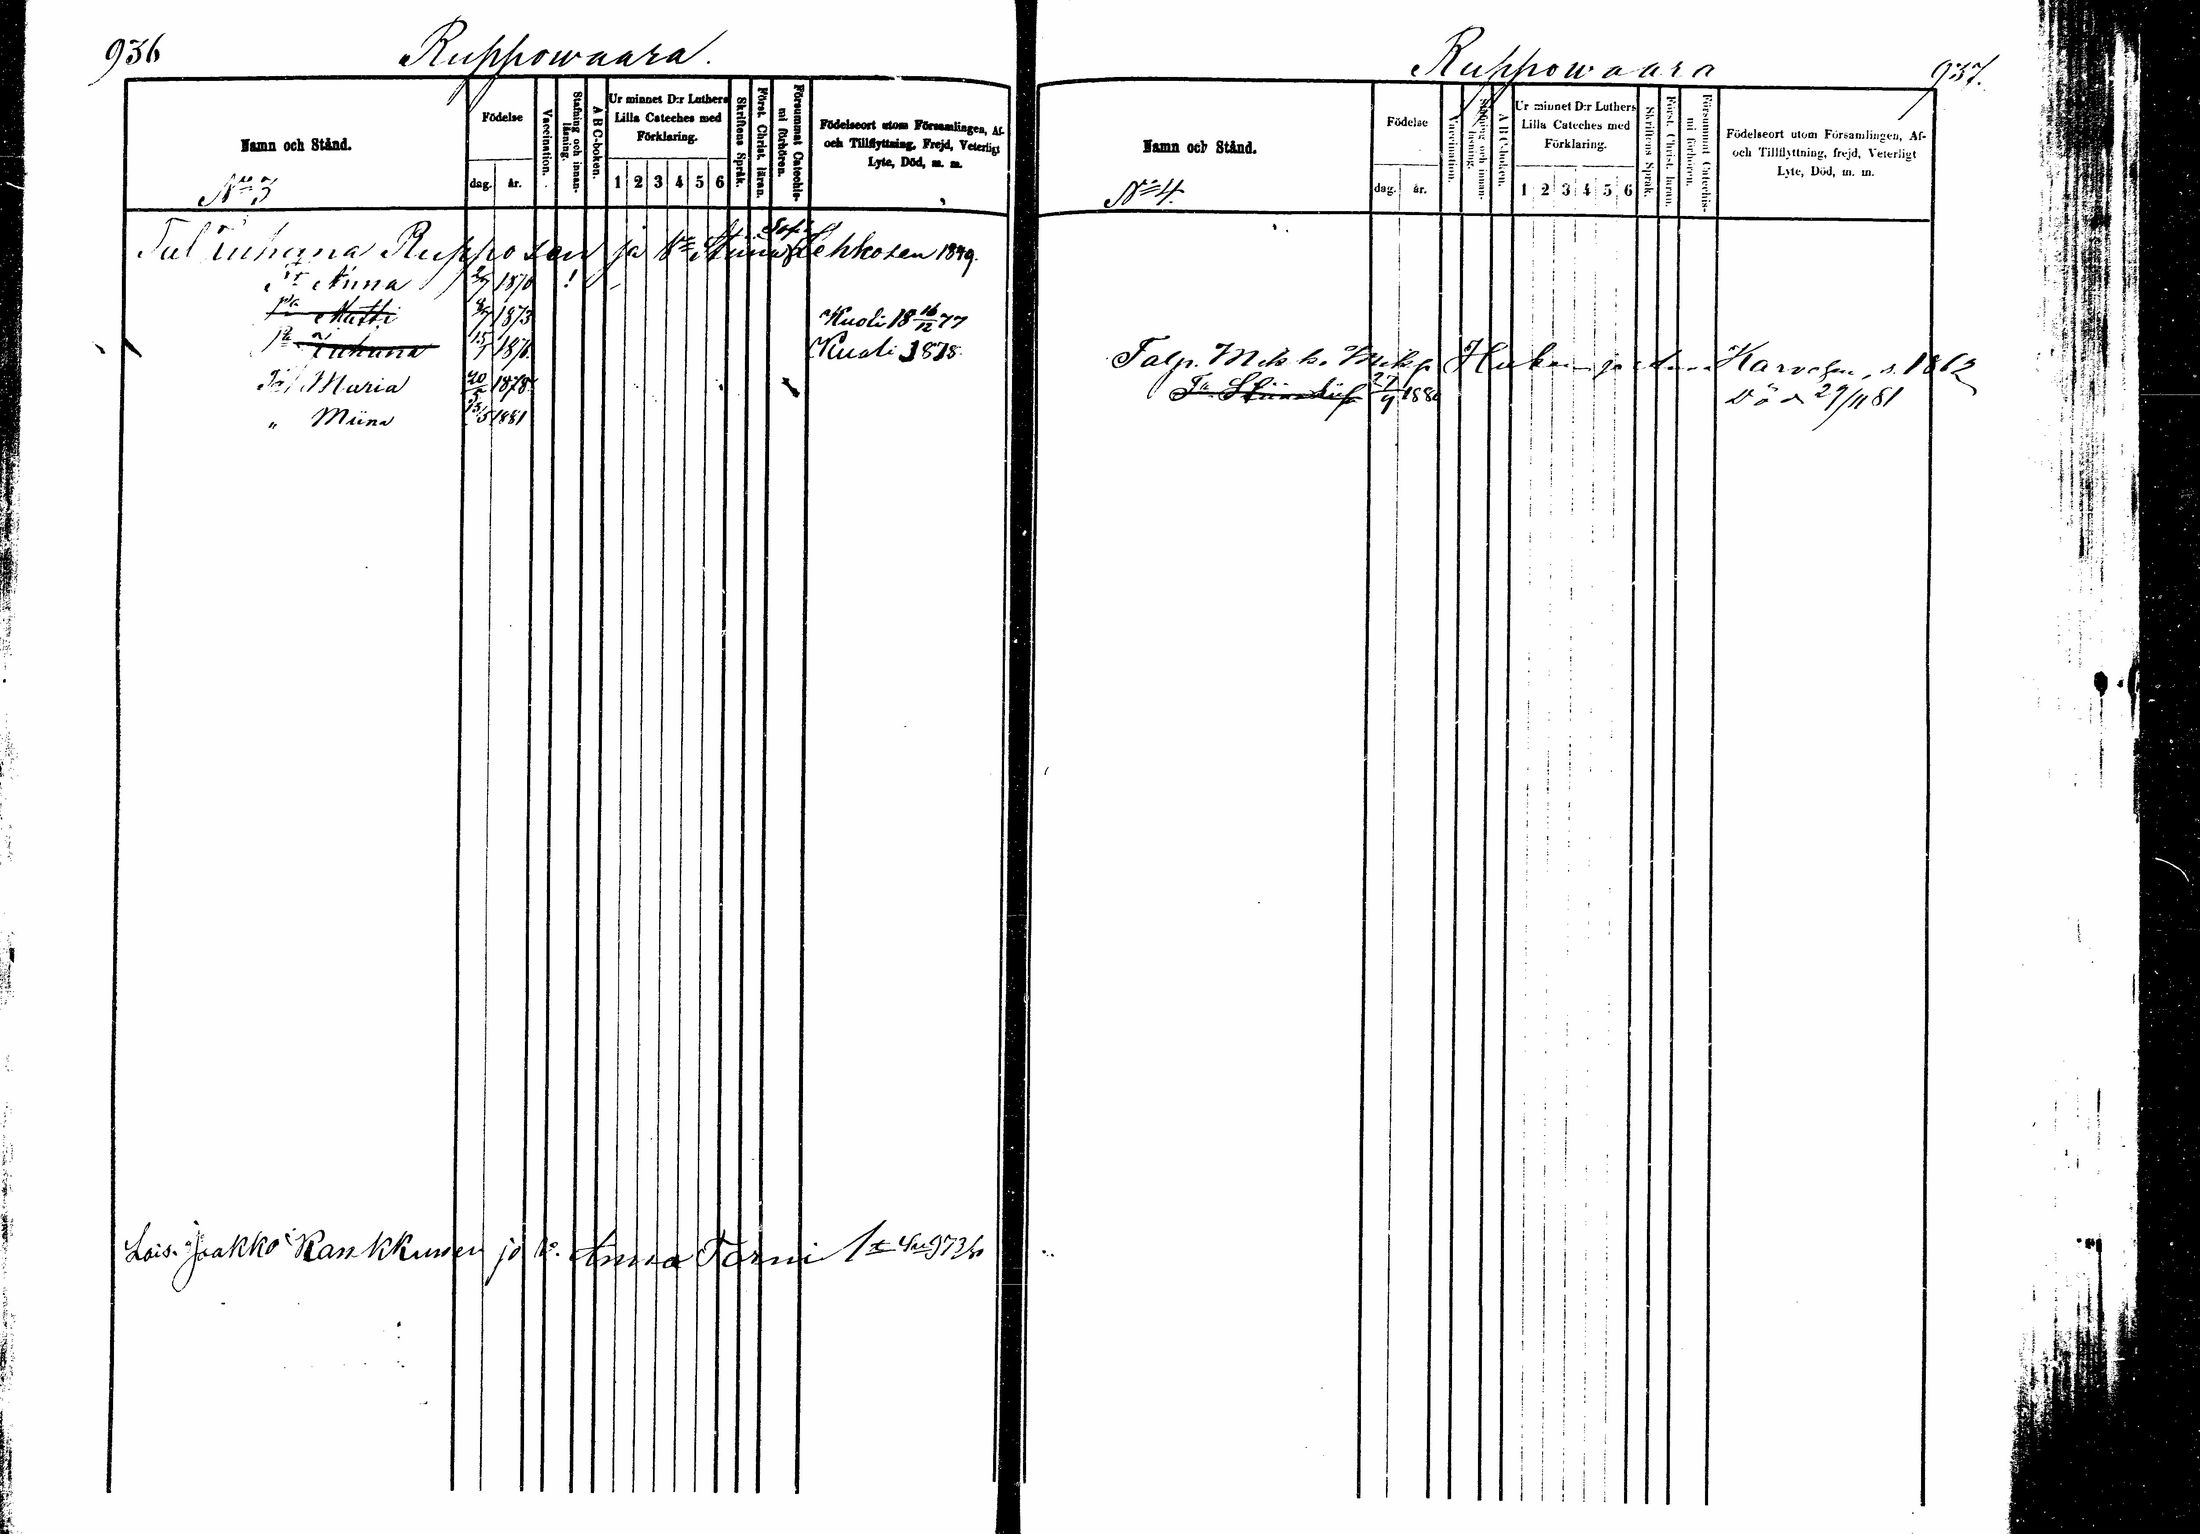 936
Ruppowaara.
Namn och Stånd.
No 3
Födelse
dag. år.
Vaccination.
Stafning och innan-läsning.
A B C-boken.
Ur minnet D:r Luthers
Lilla Cateches med
Förklaring.
1 2 3 4 5 6
Skriftens Språk.
Först. Christ. läran.
Försummat Catechis-
mi förhören.
Födelseort utom Församlingen, Af-
och Tillflyttning, Frejd, Veterligt
Lyte, Död, m. m.
Tal Juhana Rupposen ja Sof. Lehkosen 1849.
Anna 1870 !
Matti 1873 Kuoli 18 16/12 77
Juhana 1876 Kuoli 1878
Maria 20 1878
" Miina 5 1881
Lois. Jaakko Rankkunen ja vo. Anna Torni 936
Ruppowaara
937.
Namn och Stånd.
No 4.
Födelse
dag. år.
Vaccination.
Stafning och innan-läsning.
A B C-boken.
Ur minnet D:r Luthers
Lilla Cateches med
Förklaring.
1 2 3 4 5 6
Skriftens Språk.
Först. Christ. läran.
Försummat Catechis-
mi förhören.
Födelseort utom Församlingen, Af-
och Tillflyttning, frejd, Veterligt
Lyte, Död, m. m.
Talp. Mikk. ja s. 1862
27/9 1880 Död 29/11 81